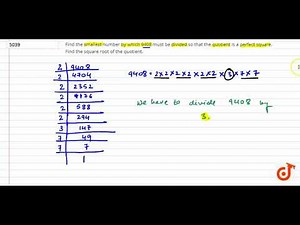 1039
Find the smallest number by which 9408 must be divided so that the quotient is a perfect square.
Find the square root of the quotient.
2 9408
2 4704
2 2352
2 1176
2 588
2 294
3 147
7 49
7 7
1
9408 = 2×2×2×2×2×2×3×7×7
We have to divide 9408 by
3.